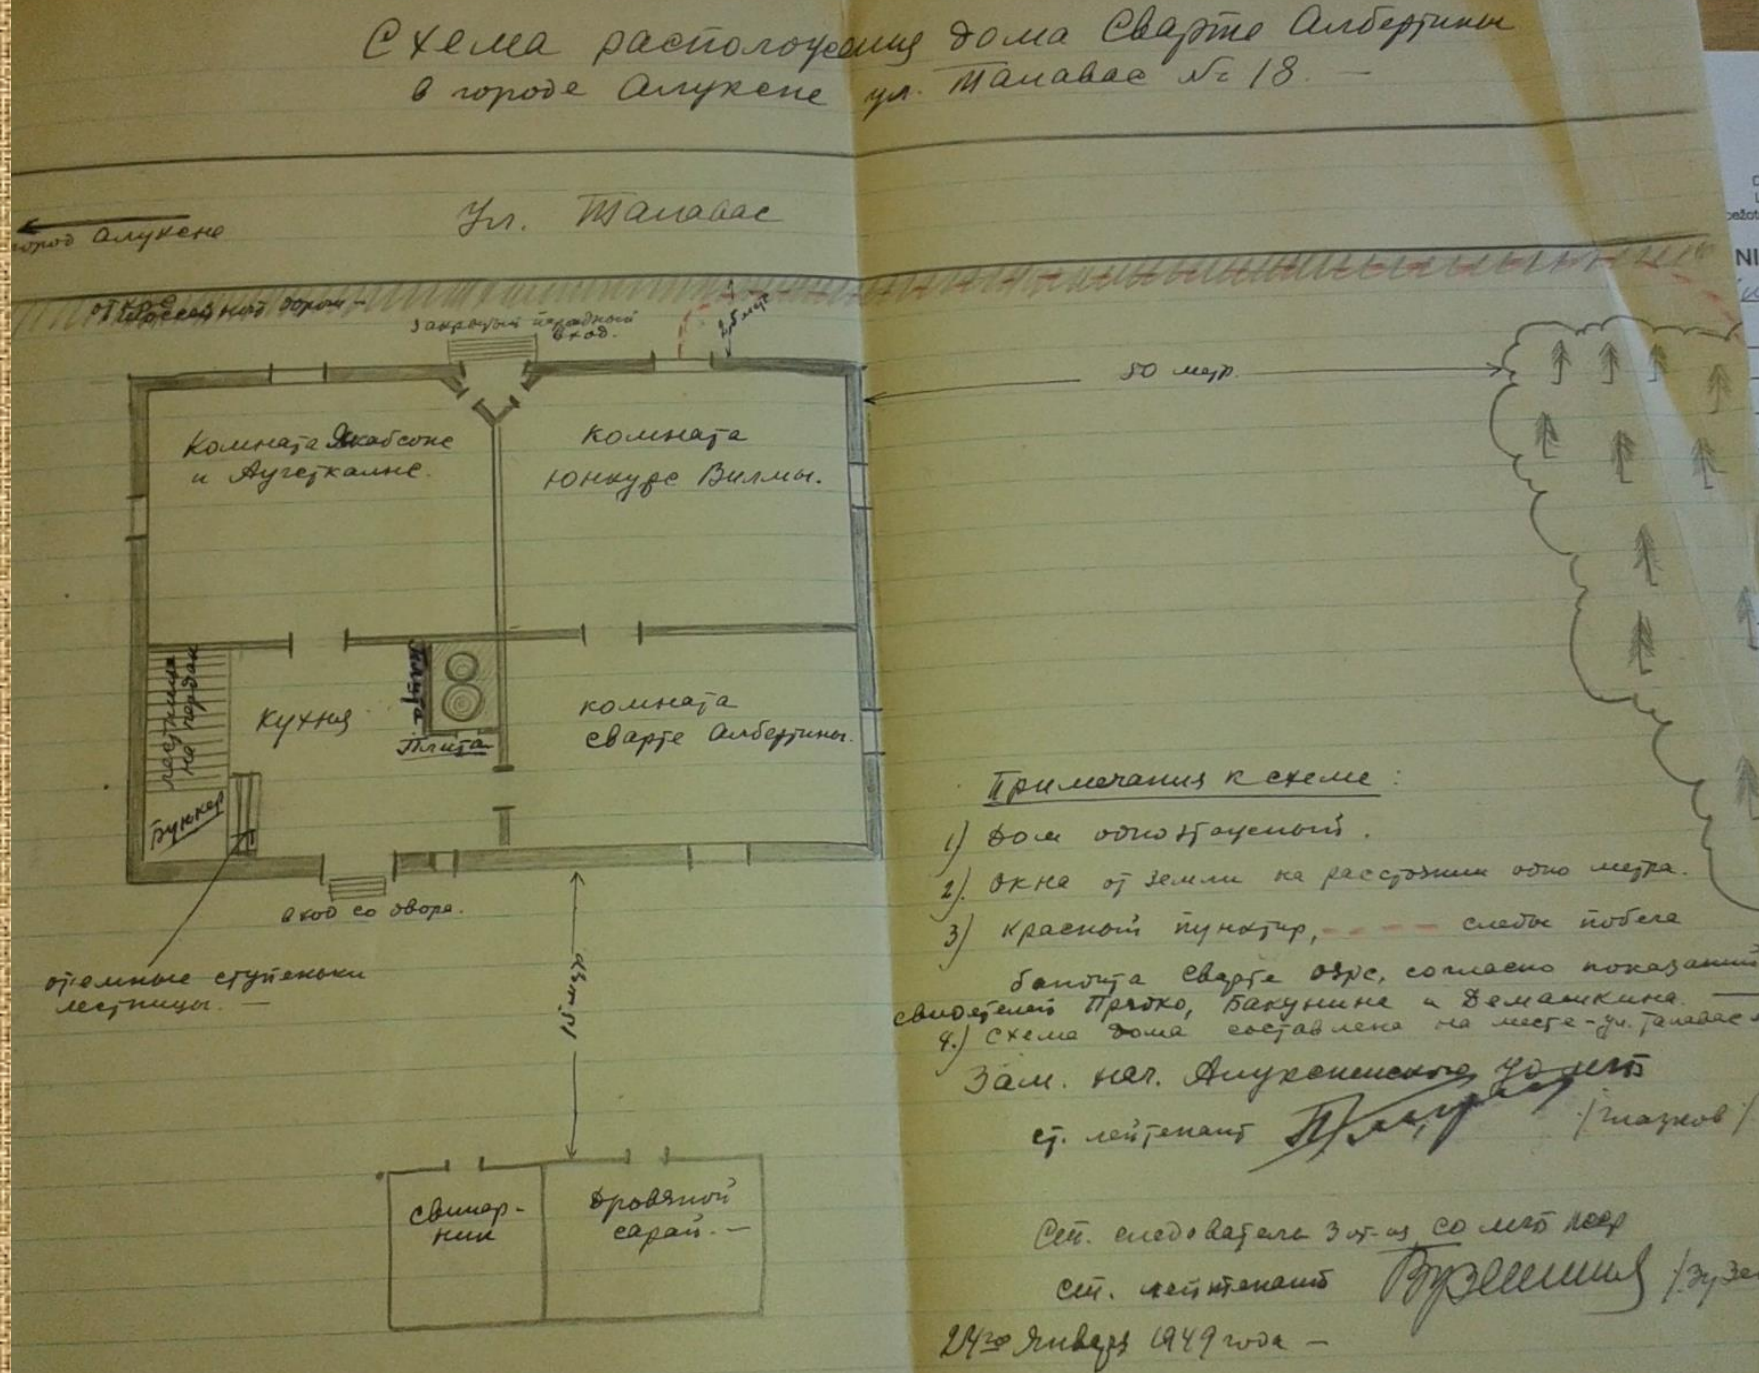 Схема расположения дома Сварте Албертины
в городе Алуксне ул. Талавас № 18. —
Ул. Талавас
город Алуксне
закрытый парадный
вход.
2,5 метр
50 метр.
Комната Якабсоне
и Аугсткалне.
комната
Юнкурс Вилмы.
лестница
на чердак
кухня
Плита
Плита
комната
Сварте Албертины.
Бункер
вход со двора.
отъемные ступеньки
лестницы. —
15 метр
свинар-
ник
Дровяной
сарай. —
Примечания к схеме:
1) Дом одноэтажный.
2). Окна от земли на расстоянии одно метра.
3) Красный пунктир, - - - - следы побега
бандита Сварте, согласно показаний
свидетелей Бакунина и Демашкина. —
4.) Схема дома составлена на месте - ул. Талавас
Зам. нач. Алуксненского уо мгб
ст. лейтенант /Глазков/
Ст. следователь 3 от-ия со мгб
ст. лейтенант
24го Января 1949 года —